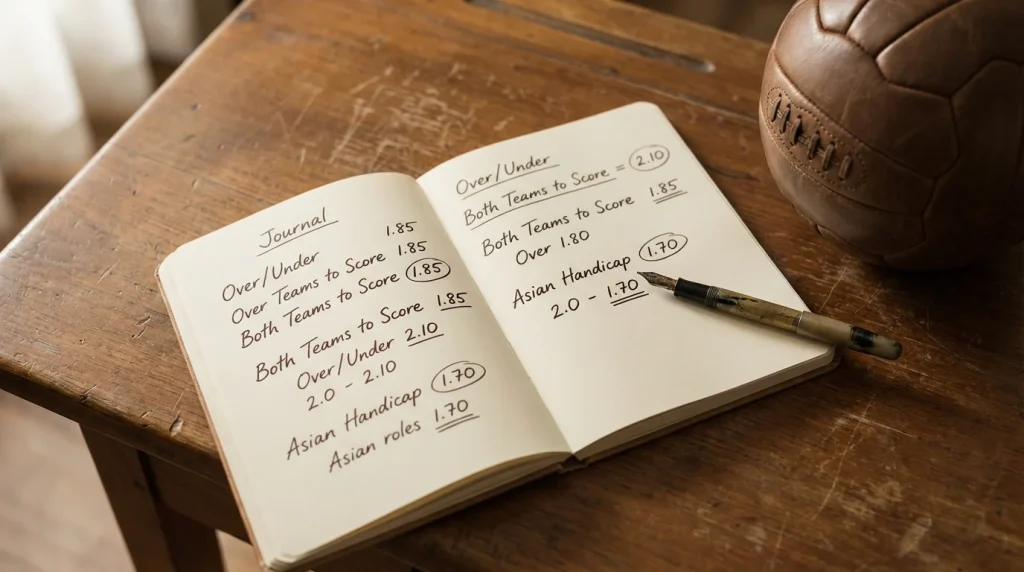 Journal
Over/Under 1.85
Over Teams to Score 1.85
Both Teams to Score 1.85
Both Teams to Score 1.85
Over/Under 2.10
2.0 - 2.10
Asian Handicap 1.70
Asian roles 1.70
Over/Under
Both Teams to Score = 2.10
Both Teams to Score 1.85
Over 1.80
Asian Handicap 1.70
2.0 - 1.70